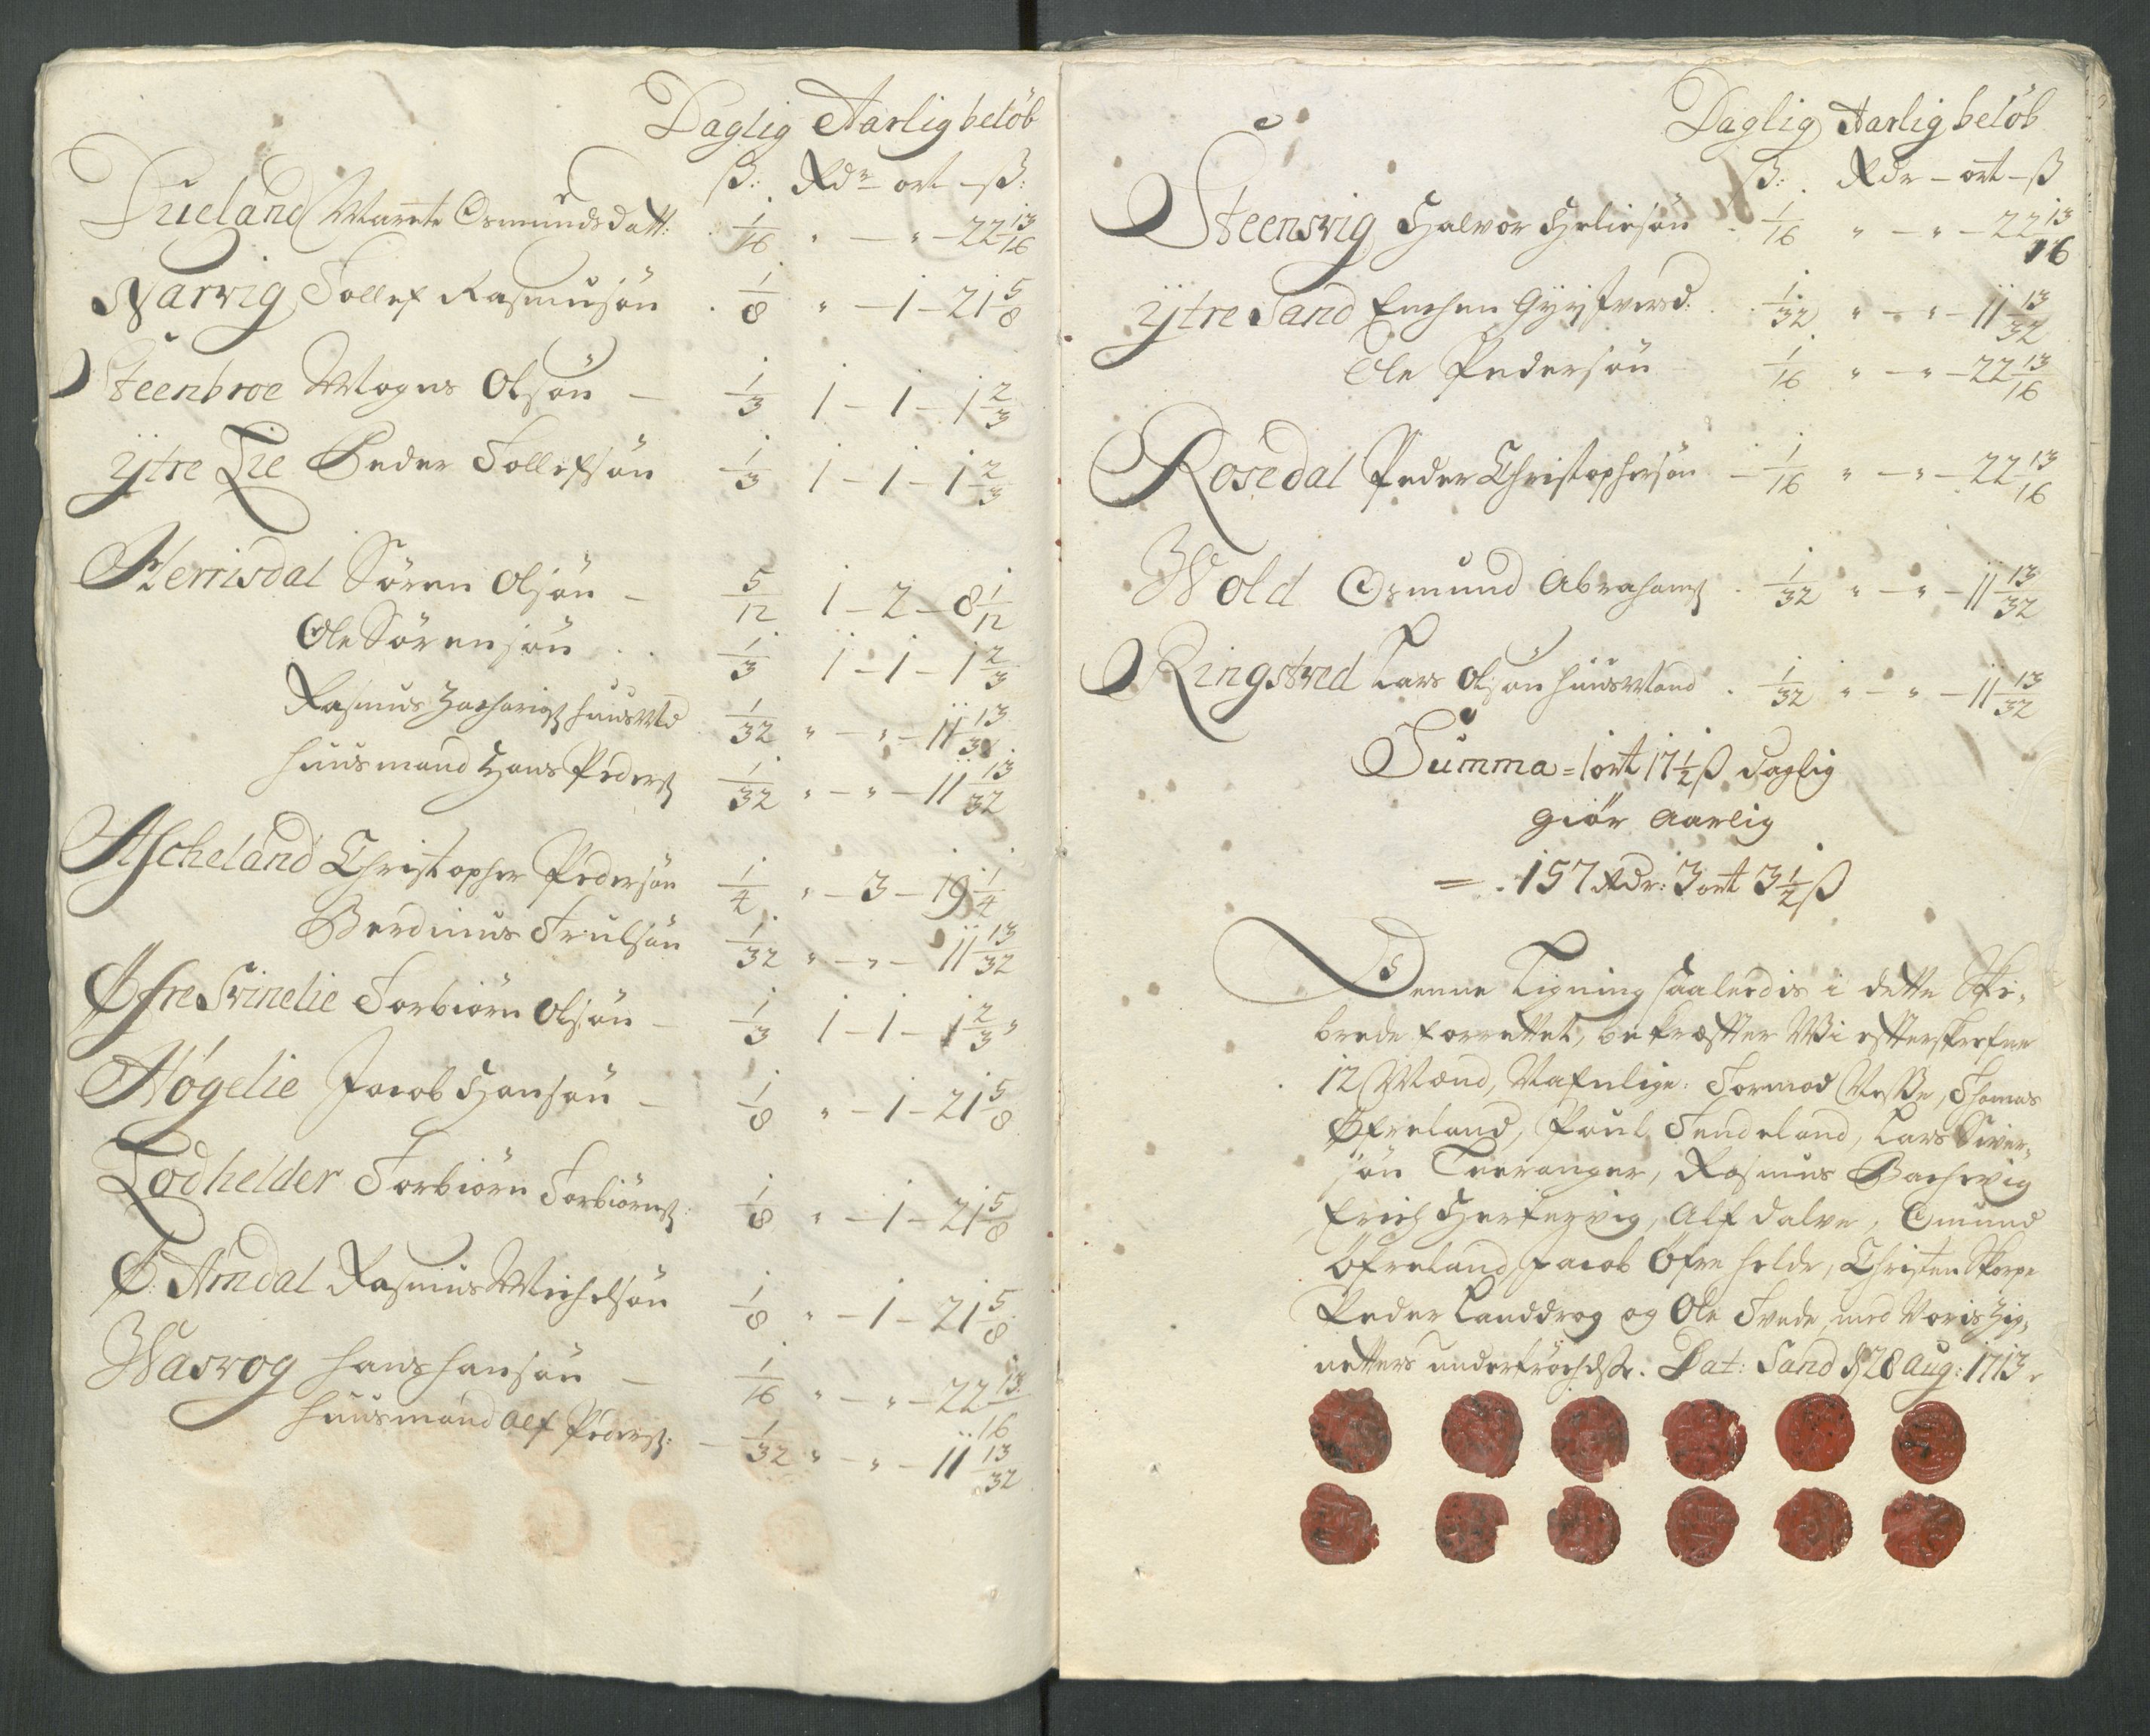 Daglig Aarlig belöb
ß: Rdr ort ß:
Dueland Marrete Osmundsdatt: 1/16 " — " — 22 13/16
Narvig Tollef Rasmusön 1/8 " — 1 — 21 5/8
Steenbroe Mogns Olsön — 1/3 1 — 1 — 1 2/3
ÿtre Lie Peder Tollefsön 1/3 1 — 1 — 1 2/3
Herrisdal Sören Olsön — 5/12 1 — 2 — 8 1/12
Ole Sörensön . . 1/3 1 — 1 — 1 2/3
Rasmus Zacharis huusMd 1/32 " — " — 11 13/32
huusmand Hans Peders 1/32 " — " — 11 13/32
Ascheland Christopher Pedersön 1/4 " — 3 — 19 1/4
Berdinus Trulsön 1/32 " — " — 11 13/32
Øfre Svinelie Torbiörn Olsön — 1/3 1 — 1 — 1 2/3
Høgelie Jacob Hansön — 1/8 " — 1 — 21 5/8
Lodhelder Torbiörn Torbiörns: 1/8 " — 1 — 21 5/8
Ø: Amdal Rasmus Michelsön 1/8 " — 1 — 21 5/8
Wasvog hans hansön — 1/16 " — " — 22 13/16
huusmand Alf Peders: — 1/32 " — " — 11 13/32
Daglig Aarlig belöb
ß: Rdr — ort — ß
Steensvig Halvor Heliesön 1/16 " — " — 22 13/16
ÿtre Sand Enchen 1/32 " — " — 11 13/32
Ole Pedersön 1/16 " — " — 22 13/16
Rosedal Peder Christophersön — 1/16 " — " — 22 13/16
Wold Osmund Abrahams . 1/32 " — " — 11 13/32
Ringstved Lars Olsön huusMand . 1/32 " — " — 11 13/32
Summa = 1 ort 17 1/2 ß daglig
giör Aarlig
= . 157 Rdr: 3 ort 3 1/2 ß
Denne Ligning saaledis i dette Ski-
brede forrettet, bekræfter Wi efterskrefne
12 Mænd, Nafnlige: Tormod Neße, Thomas
Øfreland, Poul Tendeland, Lars Siver-
sön Teeranger, Rasmus Bachevig
Erich Hertervig, Alf dalve, Omund
Øfreland, Jacob Øfre helde, Christen Skorpe
Peder Landdrog og Ole Tvede, med Voris Zig-
netters undertröchelse. Dat: Sand d 28 Aug: 1713